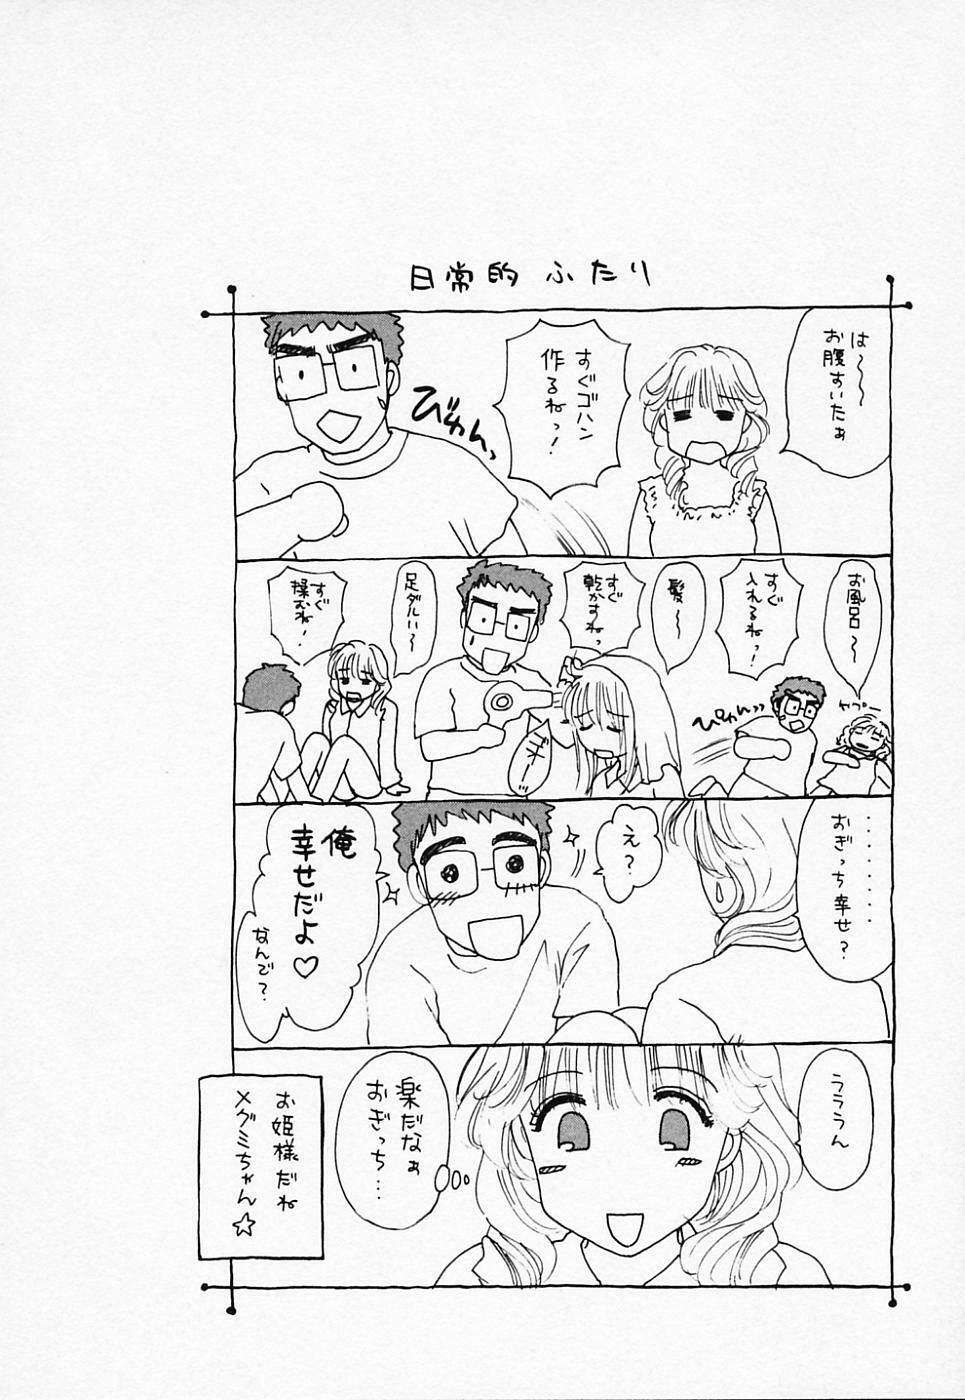 日常的 ふたり
は〜〜
お腹すいたぁ
すぐゴハン
作るねっ!
びゅん、
お風呂〜
すぐ
入れるねっ!
ヤプー
びゅん
髪〜
すぐ
乾かすねっ
ギャー!!
足ダルい〜
すぐ
揉むね!
・・・・・・・
おぎっち幸せ?
え?
俺
幸せだよ♡
なんで?
うううん
楽だなぁ
おぎっち…
お姫様だね
メグミちゃん☆